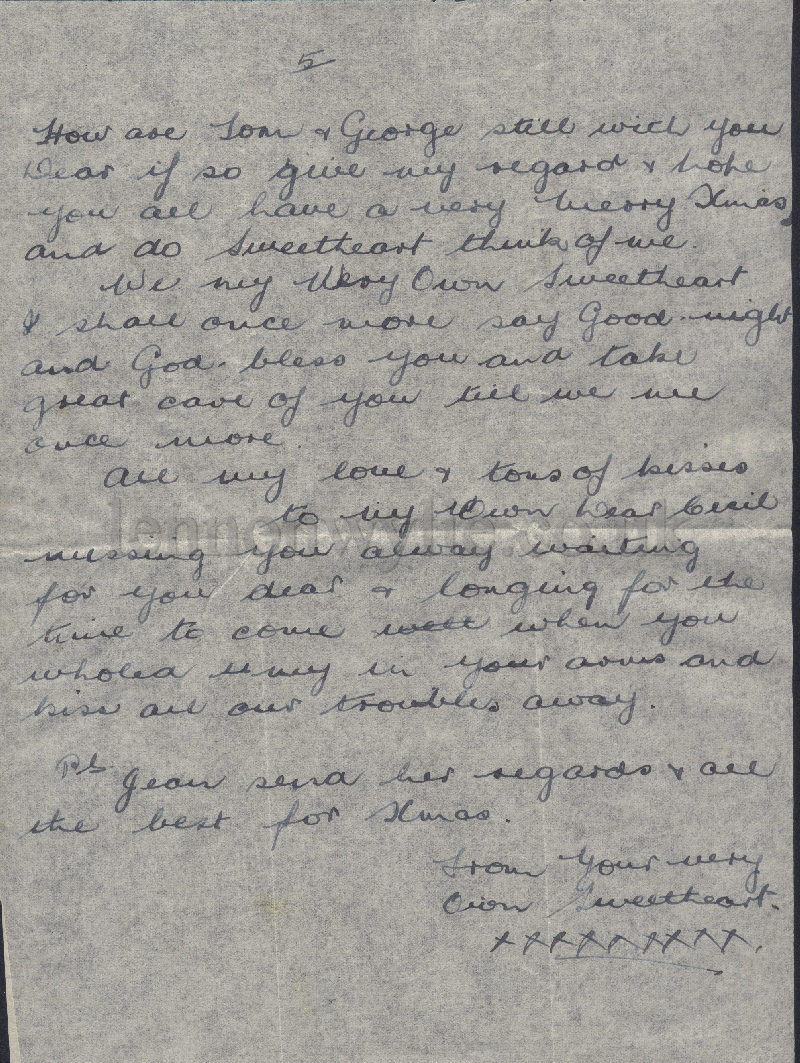 5
How are Tom & George still with you
Dear if so give my regard & hope
you all have a very Merry Xmas,
and do Sweetheart think of me.
We my Very Own Sweetheart
I shall once more say Good-night
and God-bless you and take
great care of you till we me
once more.
All my love & tons of kisses
to my Own Dear Cecil
lennonwylie.co.uk
missing you alway waiting
for you dear & longing for the
time to come well when you
in your arms and
kiss all our troubles away.
P.S. Jean send her regards & all
the best for Xmas.
From Your very
Own Sweetheart.
xxxxxxxxx.